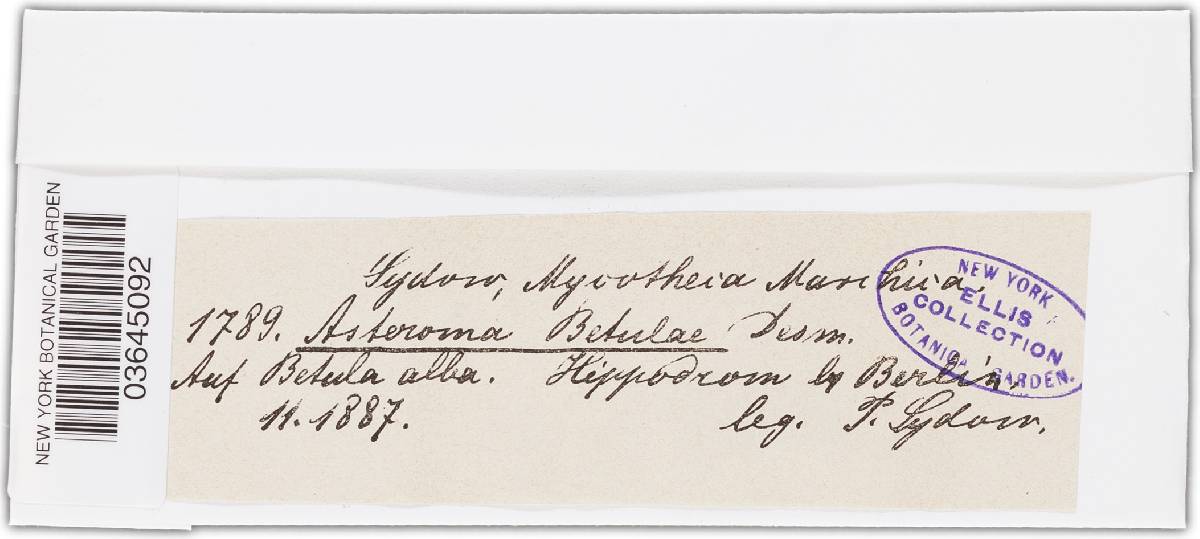 NEW YORK BOTANICAL GARDEN
03645092
Sydow, Mycotheca Marchica.
1789. Asteroma Betulae Desm.
Auf Betula alba. Hippodrom b Berlin.
11. 1887. leg. P. Sydow.
NEW YORK
ELLIS
COLLECTION
BOTANICAL GARDEN.